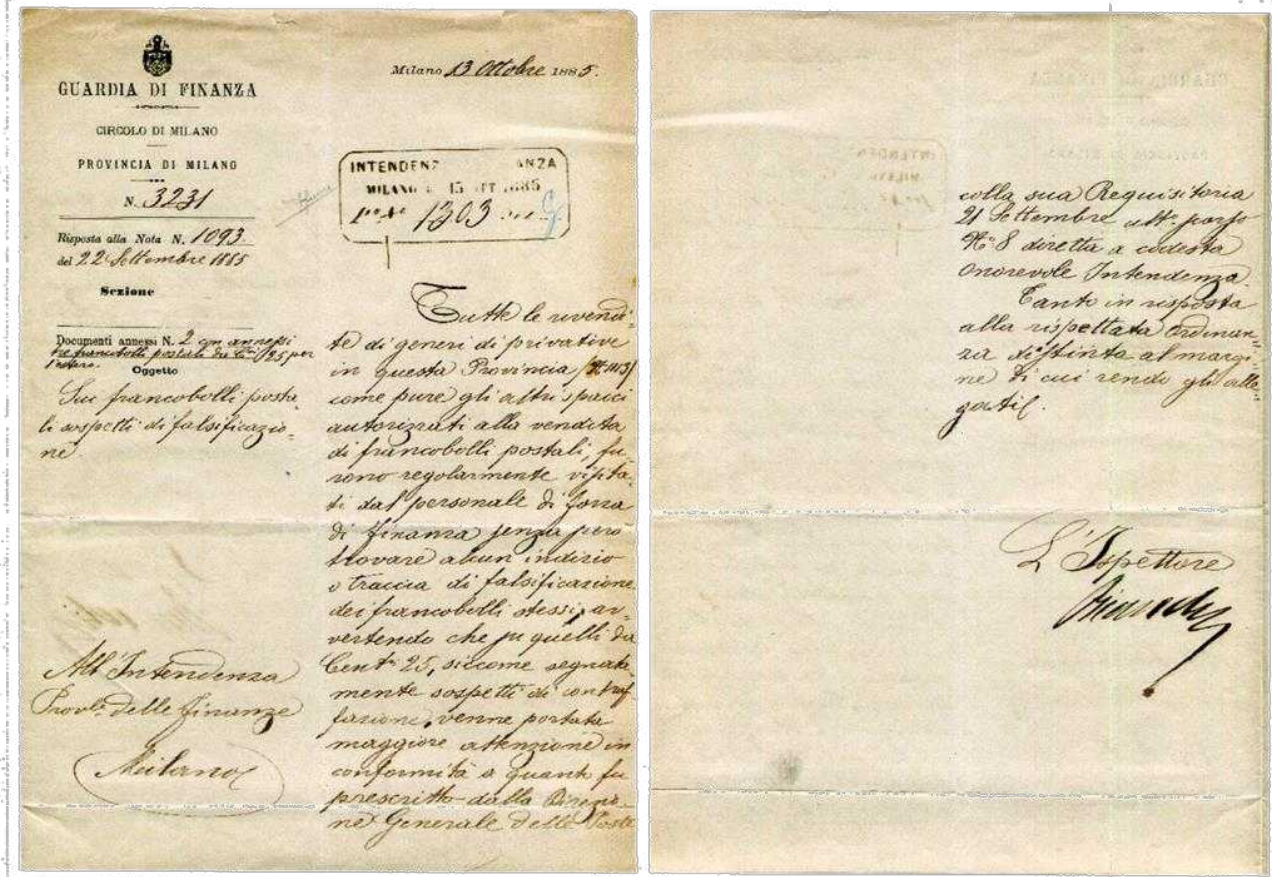 GUARDIA DI FINANZA
CIRCOLO DI MILANO
PROVINCIA DI MILANO
N. 3231
Risposta alla Nota N. 1093.
del 22 Settembre 1885
Sezione
Documenti annessi N. 2 con annessi
tre francobolli postali da Cmi 25 per
l'estero.
Oggetto
Sui francobolli posta
li sospetti di falsificazio-
ne
All'Intendenza
Provle delle finanze
Milano
Milano 13 Ottobre 1885.
INTENDENZ ANZA
MILANO 15 OTT 1885
1303
Tutte le rivendi-
te di generi di privative
in questa Provincia
come pure gli altri spacci
autorizzati alla vendita
di francobolli postali, fu-
rono regolarmente visita-
ti dal personale di forza
di finanza senza però
trovare alcun indizio
o traccia di falsificazione
dei francobolli stessi, av-
vertendo che su quelli da
Centmi 25, siccome segnata-
mente sospetti di contraf-
fazione, venne portata
maggiore attenzione in
conformità a quanto fu
prescritto dalla Direzio-
ne Generale delle Poste
colla sua Requisitoria
21 Settembre
No 8 diretta a codesta
onorevole Intendenza.
Tanto in risposta
alla rispettata Ordinan-
za distinta al margi-
ne di cui rendo gli alle-
gati.
L'Ispettore